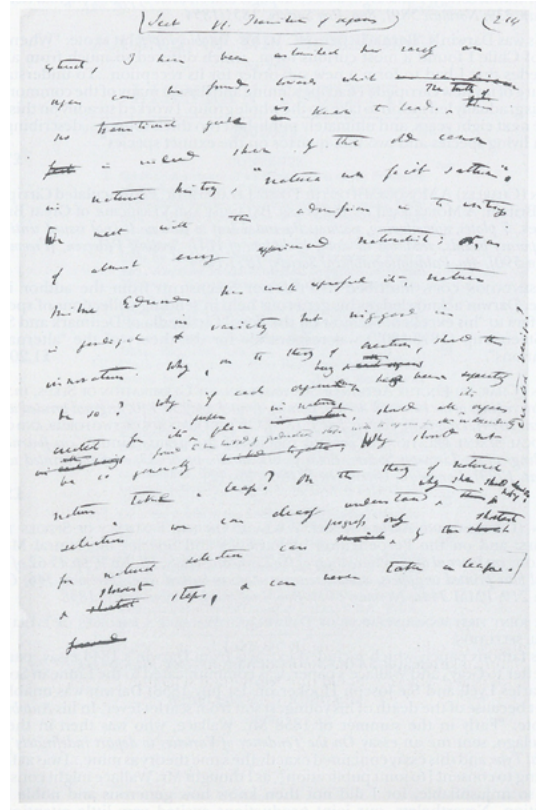 (Sect VI. Transition of organs) (214
extinct, I have been astonished how rarely an
organ can be found, towards which
no transitional grade is known to lead. The truth of
is indeed shown by the old canon
in natural history, "natura non facit saltum".
We meet with this admission in the writings
of almost every experienced naturalist; or, as
Milne Edwards has well expressed it, nature
is prodigal in variety but niggard in
innovation. Why, on the theory of creation, should this
be so? Why if each organ being separately
created for its proper place in nature, should
be so generally Why should not
nature take a leap? On the theory of natural
selection, we can clearly understand why she should
for natural selection can only by the shortest
& slowest steps, & can never take a leap.
found